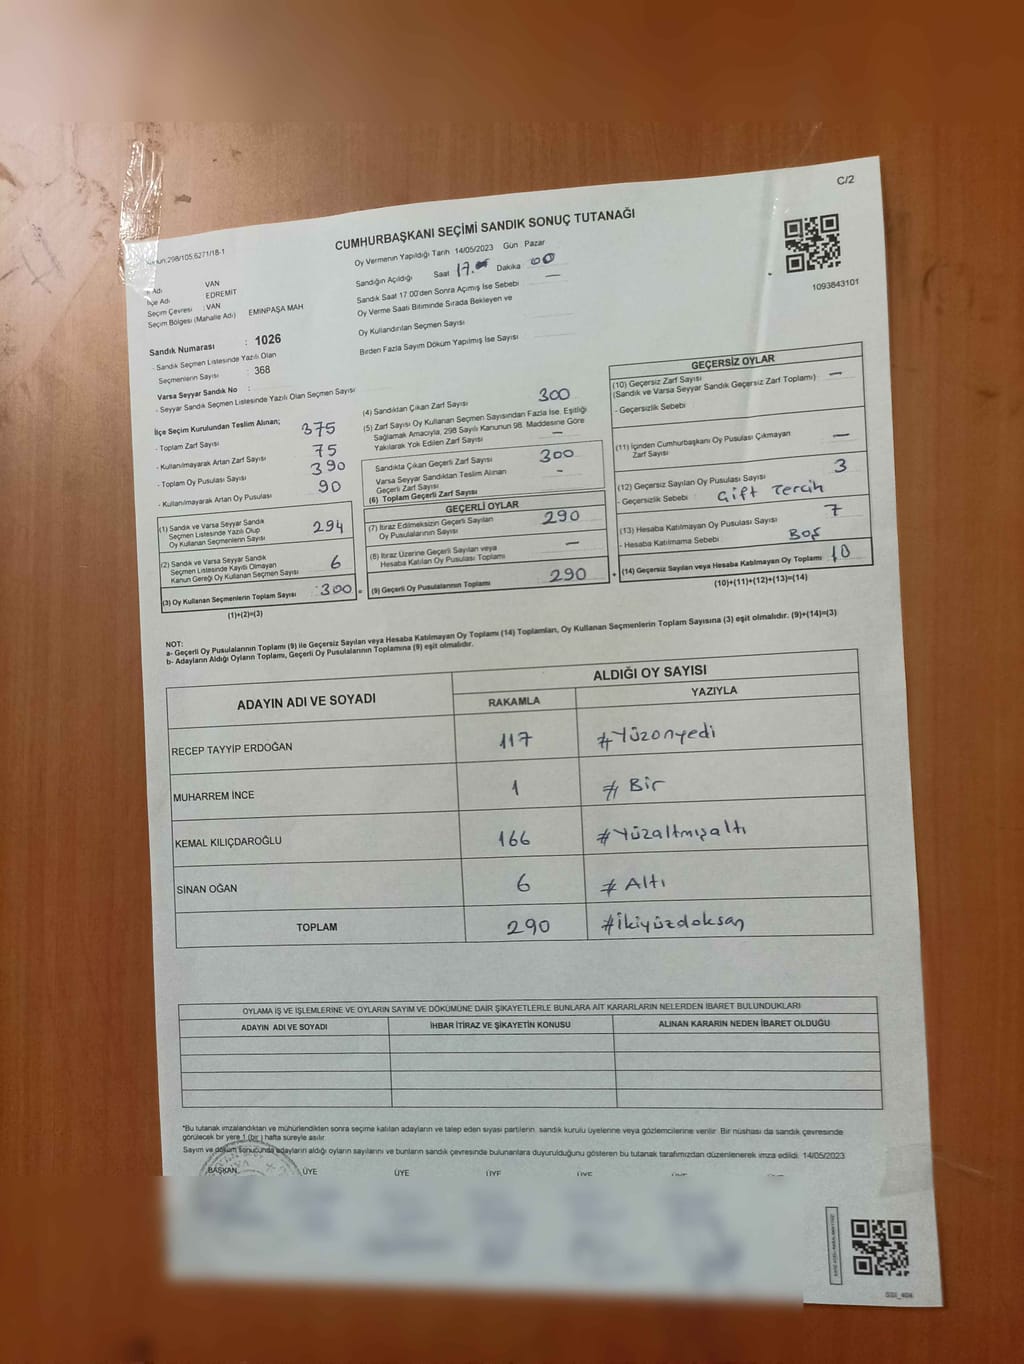 C/2
CUMHURBAŞKANI SEÇİMİ SANDIK SONUÇ TUTANAĞI
298/105,6271/18-1
Oy Vermenin Yapıldığı Tarih 14/05/2023 Gün Pazar
Sandığın Açıldığı Saat 17.00 Dakika 00
Sandık Saat 17.00'den Sonra Açılmış İse Sebebi —
Oy Verme Saati Bitiminde Sırada Bekleyen ve
Oy Kullandırılan Seçmen Sayısı
Birden Fazla Sayım Döküm Yapılmış İse Sayısı
1093843101
Adı VAN
İlçe Adı EDREMİT
Seçim Çevresi : VAN
Seçim Bölgesi (Mahalle Adı) EMİNPAŞA MAH
Sandık Numarası : 1026
- Sandık Seçmen Listesinde Yazılı Olan
Seçmenlerin Sayısı : 368
Varsa Seyyar Sandık No :
- Seyyar Sandık Seçmen Listesinde Yazılı Olan Seçmen Sayısı
İlçe Seçim Kurulundan Teslim Alınan;
- Toplam Zarf Sayısı 375
- Kullanılmayarak Artan Zarf Sayısı 75
- Toplam Oy Pusulası Sayısı 390
- Kullanılmayarak Artan Oy Pusulası 90
(1) Sandık ve Varsa Seyyar Sandık
Seçmen Listesinde Yazılı Olup
Oy Kullanan Seçmenlerin Sayısı 294
(2) Sandık ve Varsa Seyyar Sandık
Seçmen Listesinde Kayıtlı Olmayan
Kanun Gereği Oy Kullanan Seçmen Sayısı 6
(3) Oy Kullanan Seçmenlerin Toplam Sayısı : 300 =
(1)+(2)=(3)
(4) Sandıktan Çıkan Zarf Sayısı 300
(5) Zarf Sayısı Oy Kullanan Seçmen Sayısından Fazla İse, Eşitliği
Sağlamak Amacıyla, 298 Sayılı Kanunun 98. Maddesine Göre
Yakılarak Yok Edilen Zarf Sayısı —
Sandıkta Çıkan Geçerli Zarf Sayısı 300
Varsa Seyyar Sandıktan Teslim Alınan
Geçerli Zarf Sayısı -
(6) Toplam Geçerli Zarf Sayısı
GEÇERLİ OYLAR
(7) İtiraz Edilmeksizin Geçerli Sayılan
Oy Pusulasının Sayısı 290
(8) İtiraz Üzerine Geçerli Sayılan veya
Hesaba Katılan Oy Pusulası Toplamı —
(9) Geçerli Oy Pusulalarının Toplamı 290 +
GEÇERSİZ OYLAR
(10) Geçersiz Zarf Sayısı
(Sandık ve Varsa Seyyar Sandık Geçersiz Zarf Toplamı) —
- Geçersizlik Sebebi
(11) İçinden Cumhurbaşkanı Oy Pusulası Çıkmayan
Zarf Sayısı —
(12) Geçersiz Sayılan Oy Pusulası Sayısı 3
- Geçersizlik Sebebi : Çift Tercih
(13) Hesaba Katılmayan Oy Pusulası Sayısı 7
- Hesaba Katılmama Sebebi : Boş
(14) Geçersiz Sayılan veya Hesaba Katılmayan Oy Toplamı 10
(10)+(11)+(12)+(13)=(14)
NOT:
a- Geçerli Oy Pusulalarının Toplamı (9) ile Geçersiz Sayılan veya Hesaba Katılmayan Oy Toplamı (14) Toplamları, Oy Kullanan Seçmenlerin Toplam Sayısına (3) eşit olmalıdır. (9)+(14)=(3)
b- Adayların Aldığı Oyların Toplamı, Geçerli Oy Pusulalarının Toplamına (9) eşit olmalıdır.
ADAYIN ADI VE SOYADI ALDIĞI OY SAYISI
RAKAMLA YAZIYLA
RECEP TAYYİP ERDOĞAN 117 #Yüzonyedi
MUHARREM İNCE 1 # Bir
KEMAL KILIÇDAROĞLU 166 #Yüzaltmışaltı
SİNAN OĞAN 6 # Altı
TOPLAM 290 #İkiyüzdoksan
OYLAMA İŞ VE İŞLEMLERİNE VE OYLARIN SAYIM VE DÖKÜMÜNE DAİR ŞİKAYETLERLE BUNLARA AİT KARARLARIN NELERDEN İBARET BULUNDUKLARI
ADAYIN ADI VE SOYADI İHBAR İTİRAZ VE ŞİKAYETİN KONUSU ALINAN KARARIN NEDEN İBARET OLDUĞU
*Bu tutanak imzalandıktan ve mühürlendikten sonra seçime katılan adayların ve talep eden siyasi partilerin, sandık kurulu üyelerine veya gözlemcilerine verilir. Bir nüshası da sandık çevresinde
görülecek bir yere 1 (bir) hafta süreyle asılır.
Sayım ve döküm sonucunda adayların aldığı oyların sayılarını ve bunların sandık çevresinde bulunanlara duyurulduğunu gösteren bu tutanak tarafımızdan düzenlenerek imza edildi. 14/05/2023
BAŞKAN ÜYE ÜYE ÜYE ÜYE ÜYE ÜYE